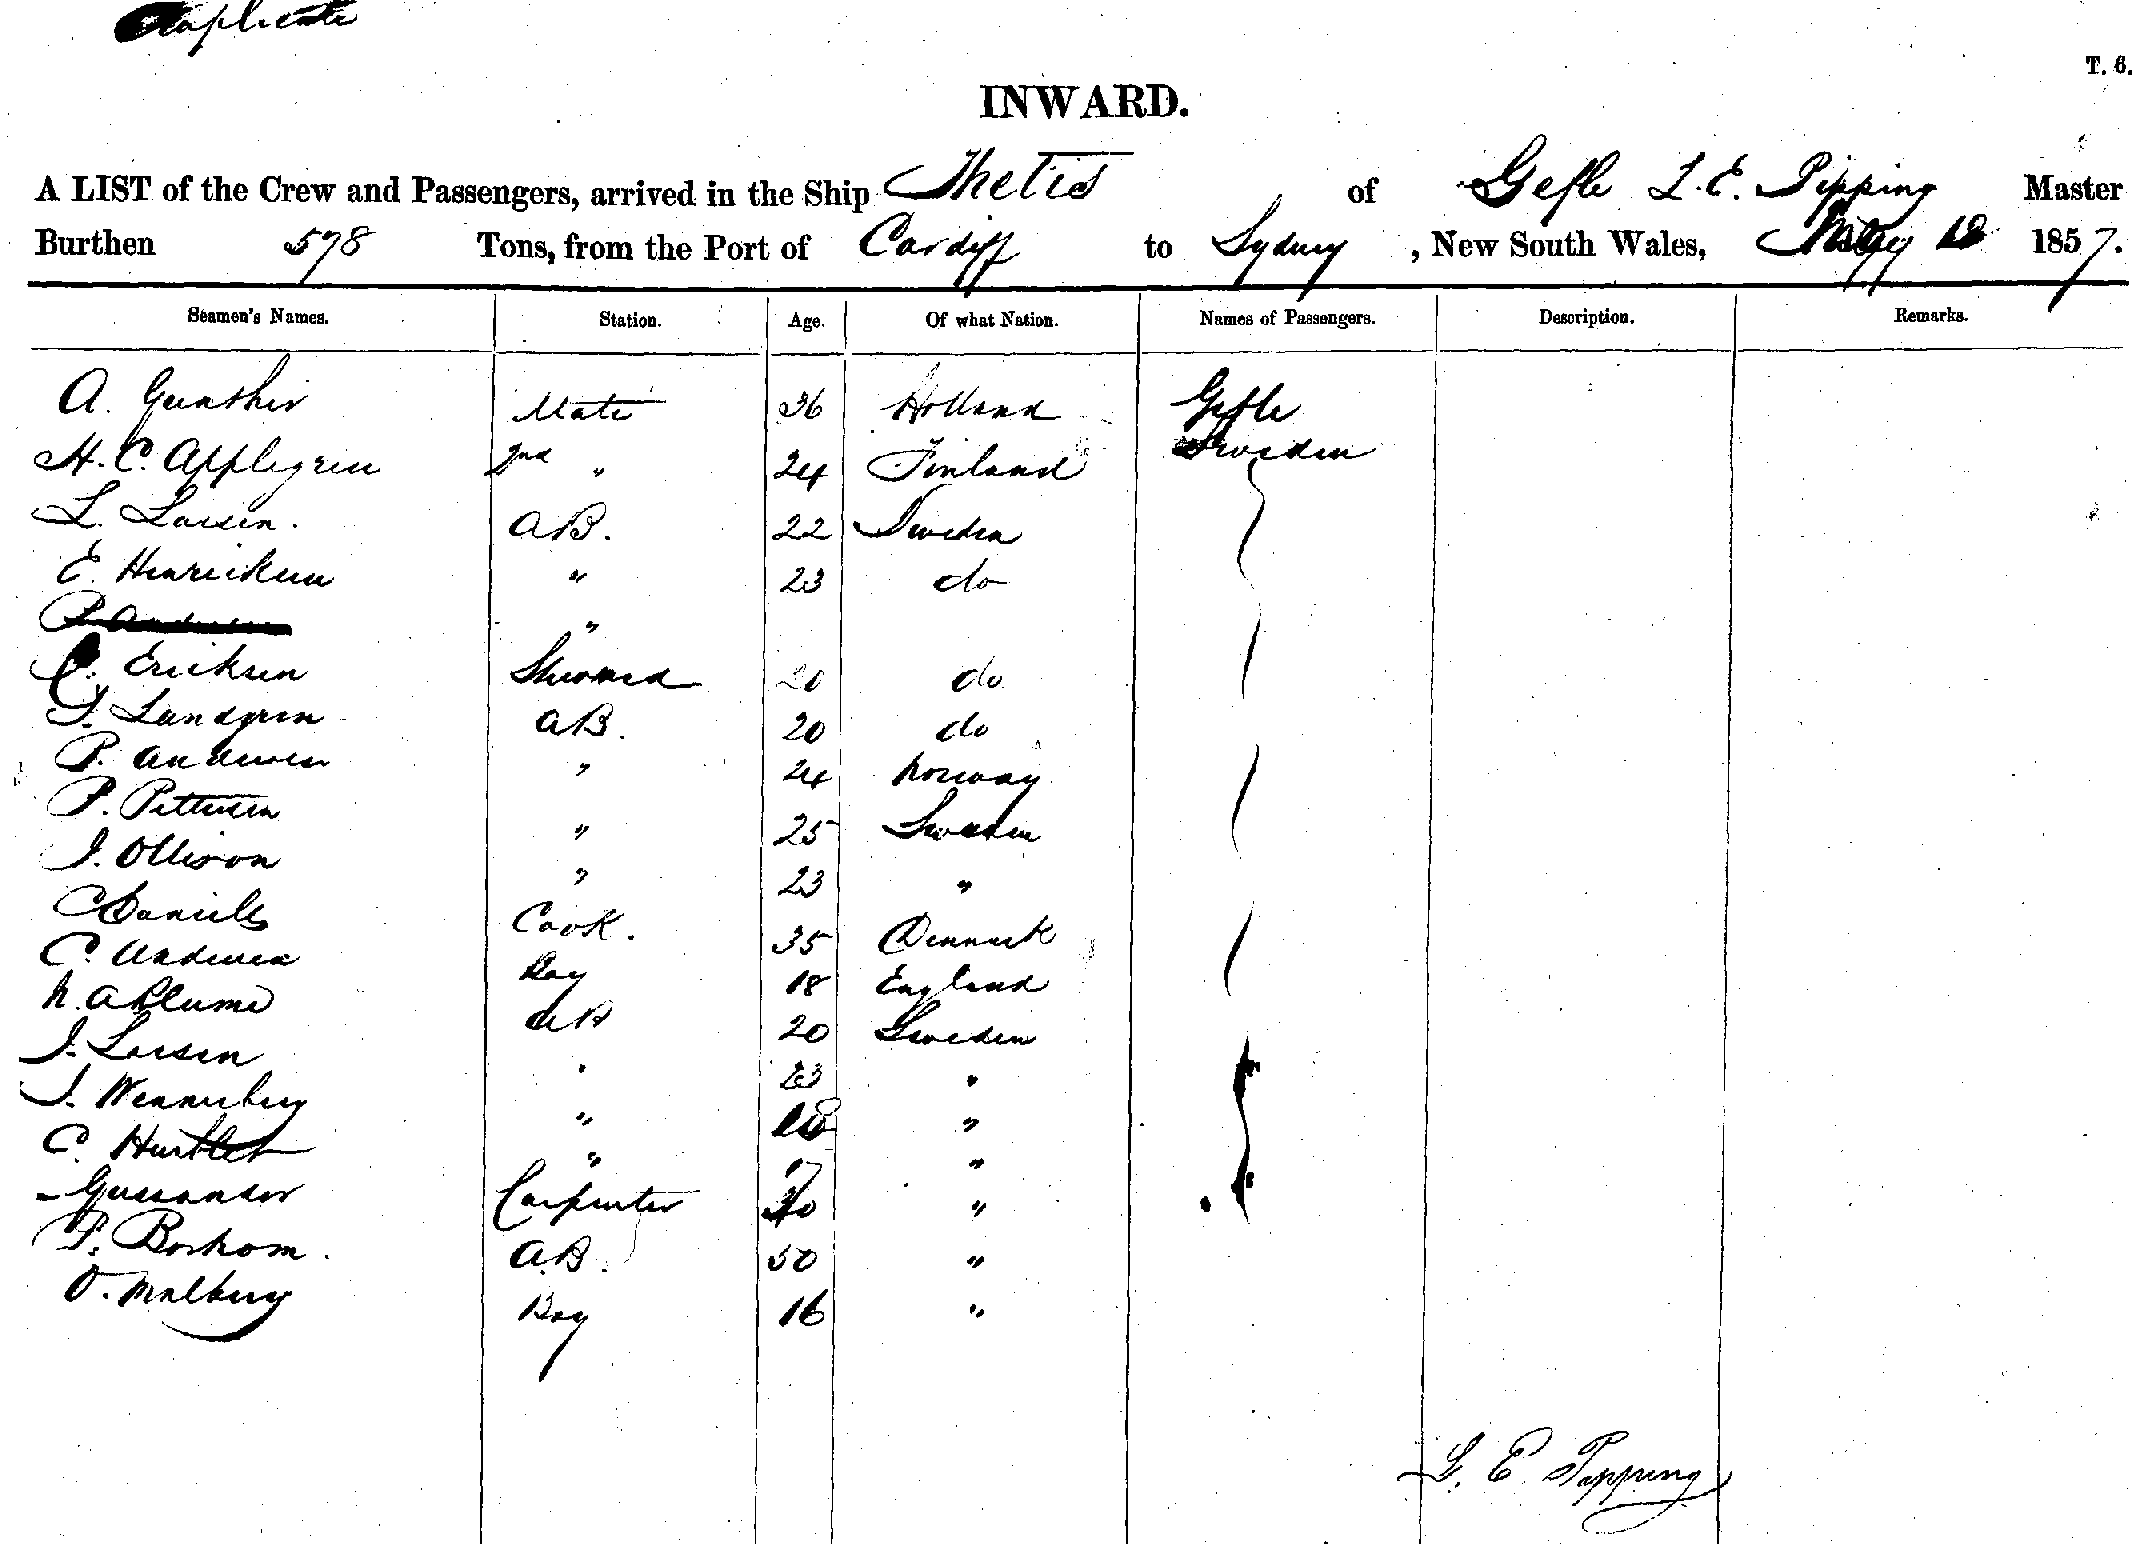 Duplicate
T. 6.
INWARD.
A LIST of the Crew and Passengers, arrived in the Ship Thetis of Gefle L. E. Pipping Master
Burthen 578 Tons, from the Port of Cardiff to Sydney, New South Wales, May 1857.
Seamen's Names. Station. Age. Of what Nation. Names of Passengers. Description. Remarks.
A. Gunther Mate 36 Holland Gefle
H. C. Applegren 2nd " 24 Finland Sweden
L. Larsen. A.B. 22 Sweden
E. Henricksen " 23 do
P. Andersen "
C. Eriksen Steward 20 do
J. Lundgren AB. 20 do
P. Andersen " 24 Norway
P. Pettersen " 25 Sweden
J. Ollison " 23 "
C Daniels Cook. 35 Denmark
C. Andersen Boy 18 England
N. Ablume AB 20 Sweden
J. Larsen " 23 "
J. Wennerberg " 18 "
C. " 17 "
Carpenter 40 "
F. Borkom. A.B. 50 "
O. Malberg Boy 16 "
L. E. Pipping